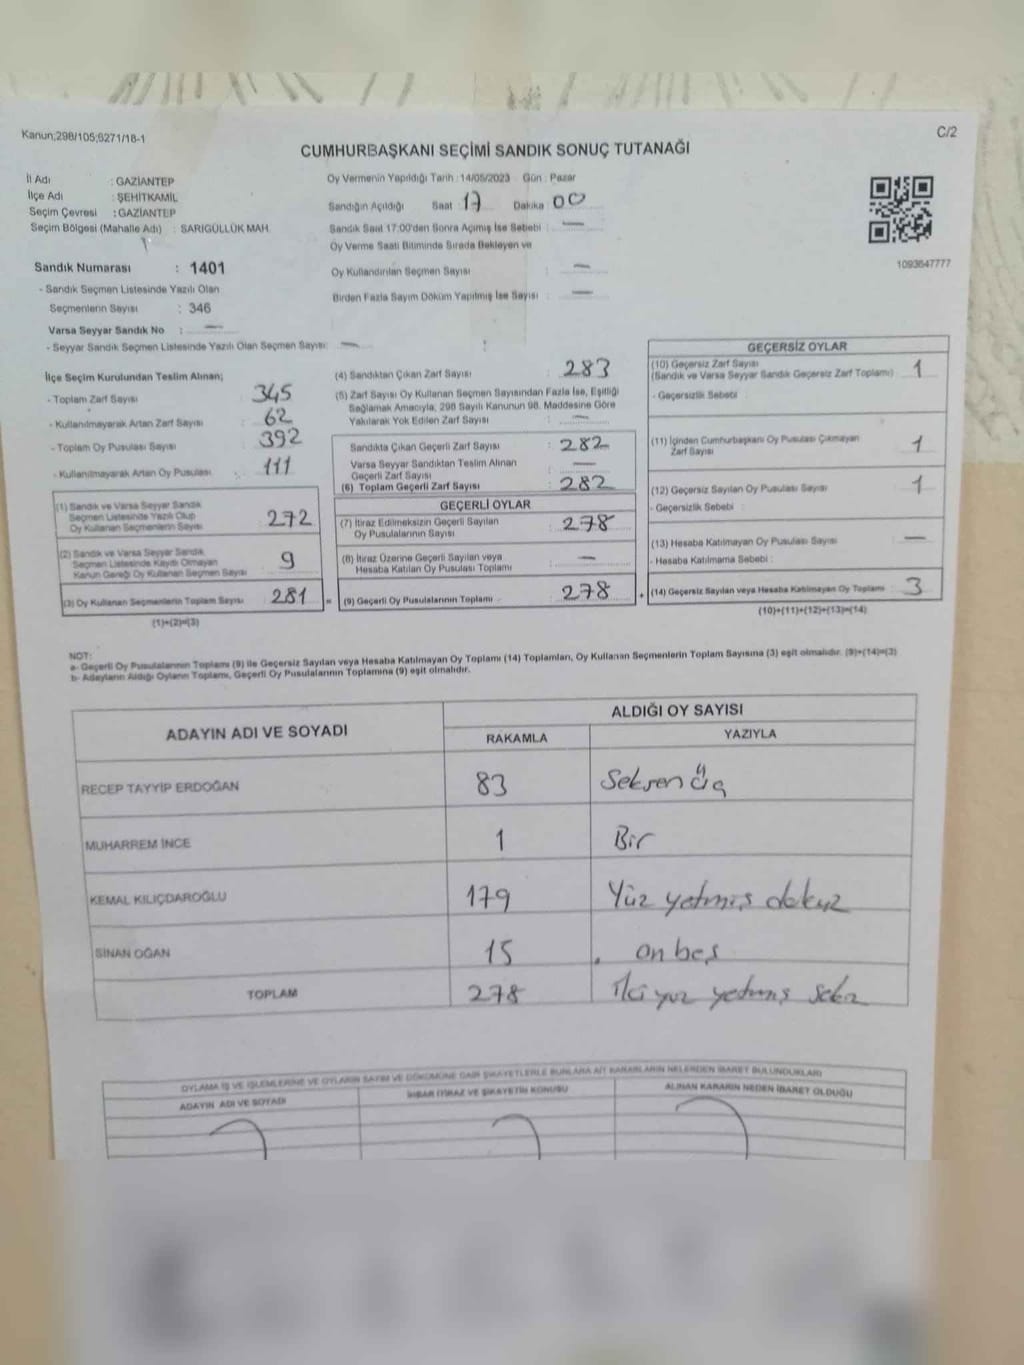 Kanun;298/105;6271/18-1
C/2
CUMHURBAŞKANI SEÇİMİ SANDIK SONUÇ TUTANAĞI
İl Adı : GAZİANTEP
İlçe Adı : ŞEHİTKAMİL
Seçim Çevresi : GAZİANTEP
Seçim Bölgesi (Mahalle Adı) : SARIGÜLLÜK MAH.
Oy Vermenin Yapıldığı Tarih : 14/05/2023 Gün : Pazar
Sandığın Açıldığı Saat : 17 Dakika 00
Sandık Saat 17:00'den Sonra Açılmış İse Sebebi : —
Oy Verme Saati Bitiminde Sırada Bekleyen ve
Oy Kullandırılan Seçmen Sayısı : —
Birden Fazla Sayım Döküm Yapılmış İse Sayısı : —
1093647777
Sandık Numarası : 1401
- Sandık Seçmen Listesinde Yazılı Olan
Seçmenlerin Sayısı : 346
Varsa Seyyar Sandık No : —
- Seyyar Sandık Seçmen Listesinde Yazılı Olan Seçmen Sayısı: —
İlçe Seçim Kurulundan Teslim Alınan;
- Toplam Zarf Sayısı : 345
- Kullanılmayarak Artan Zarf Sayısı : 62
- Toplam Oy Pusulası Sayısı : 392
- Kullanılmayarak Artan Oy Pusulası : 111
(1) Sandık ve Varsa Seyyar Sandık
Seçmen Listesinde Yazılı Olup
Oy Kullanan Seçmenlerin Sayısı : 272
(2) Sandık ve Varsa Seyyar Sandık
Seçmen Listesinde Kayıtlı Olmayan
Kanun Gereği Oy Kullanan Seçmen Sayısı : 9
(3) Oy Kullanan Seçmenlerin Toplam Sayısı : 281
(1)+(2)=(3)
(4) Sandıktan Çıkan Zarf Sayısı : 283
(5) Zarf Sayısı Oy Kullanan Seçmen Sayısından Fazla İse, Eşitliği
Sağlamak Amacıyla, 298 Sayılı Kanunun 98. Maddesine Göre
Yakılarak Yok Edilen Zarf Sayısı : —
Sandıkta Çıkan Geçerli Zarf Sayısı : 282
Varsa Seyyar Sandıktan Teslim Alınan
Geçerli Zarf Sayısı : —
(6) Toplam Geçerli Zarf Sayısı : 282
GEÇERLİ OYLAR
(7) İtiraz Edilmeksizin Geçerli Sayılan
Oy Pusulasının Sayısı : 278
(8) İtiraz Üzerine Geçerli Sayılan veya
Hesaba Katılan Oy Pusulası Toplamı : —
= (9) Geçerli Oy Pusulalarının Toplamı : 278
GEÇERSİZ OYLAR
(10) Geçersiz Zarf Sayısı
(Sandık ve Varsa Seyyar Sandık Geçersiz Zarf Toplamı) : 1
- Geçersizlik Sebebi :
(11) İçinden Cumhurbaşkanı Oy Pusulası Çıkmayan
Zarf Sayısı : 1
(12) Geçersiz Sayılan Oy Pusulası Sayısı : 1
- Geçersizlik Sebebi :
(13) Hesaba Katılmayan Oy Pusulası Sayısı : —
- Hesaba Katılmama Sebebi :
+ (14) Geçersiz Sayılan veya Hesaba Katılmayan Oy Toplamı : 3
(10)+(11)+(12)+(13)=(14)
NOT:
a- Geçerli Oy Pusulalarının Toplamı (9) ile Geçersiz Sayılan veya Hesaba Katılmayan Oy Toplamı (14) Toplamları, Oy Kullanan Seçmenlerin Toplam Sayısına (3) eşit olmalıdır. (9)+(14)=(3)
b- Adayların Aldığı Oyların Toplamı, Geçerli Oy Pusulalarının Toplamına (9) eşit olmalıdır.
ADAYIN ADI VE SOYADI
ALDIĞI OY SAYISI
RAKAMLA YAZIYLA
RECEP TAYYİP ERDOĞAN 83 Seksen üç
MUHARREM İNCE 1 Bir
KEMAL KILIÇDAROĞLU 179 Yüz yetmiş dokuz
SİNAN OĞAN 15 on beş
TOPLAM 278 İki yüz yetmiş sekiz
OYLAMA İŞ VE İŞLEMLERİNE VE OYLARIN SAYIM VE DÖKÜMÜNE DAİR ŞİKAYETLERLE BUNLARA AİT KARARLARIN NELERDEN İBARET BULUNDUKLARI
ADAYIN ADI VE SOYADI
İHBAR İTİRAZ VE ŞİKAYETİN KONUSU
ALINAN KARARIN NEDEN İBARET OLDUĞU